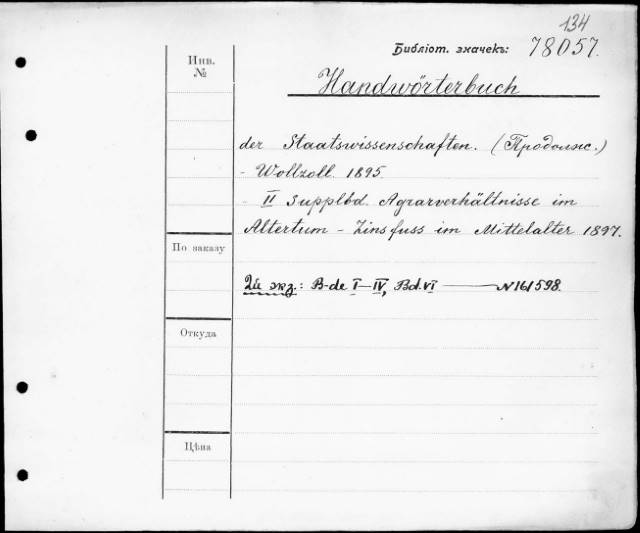 134
Библіот. значекъ: 78057.
Инв.
№
Handwörterbuch
der Staatswissenschaften. (Продолж.)
- Wollzoll 1895.
- II Supplbd. Agrarverhältnisse im
Altertum - Zinsfuss im Mittelalter 1897.
По заказу
2й экз.: B-de I-IV, Bd. VI — N 161598.
Откуда
Цѣна